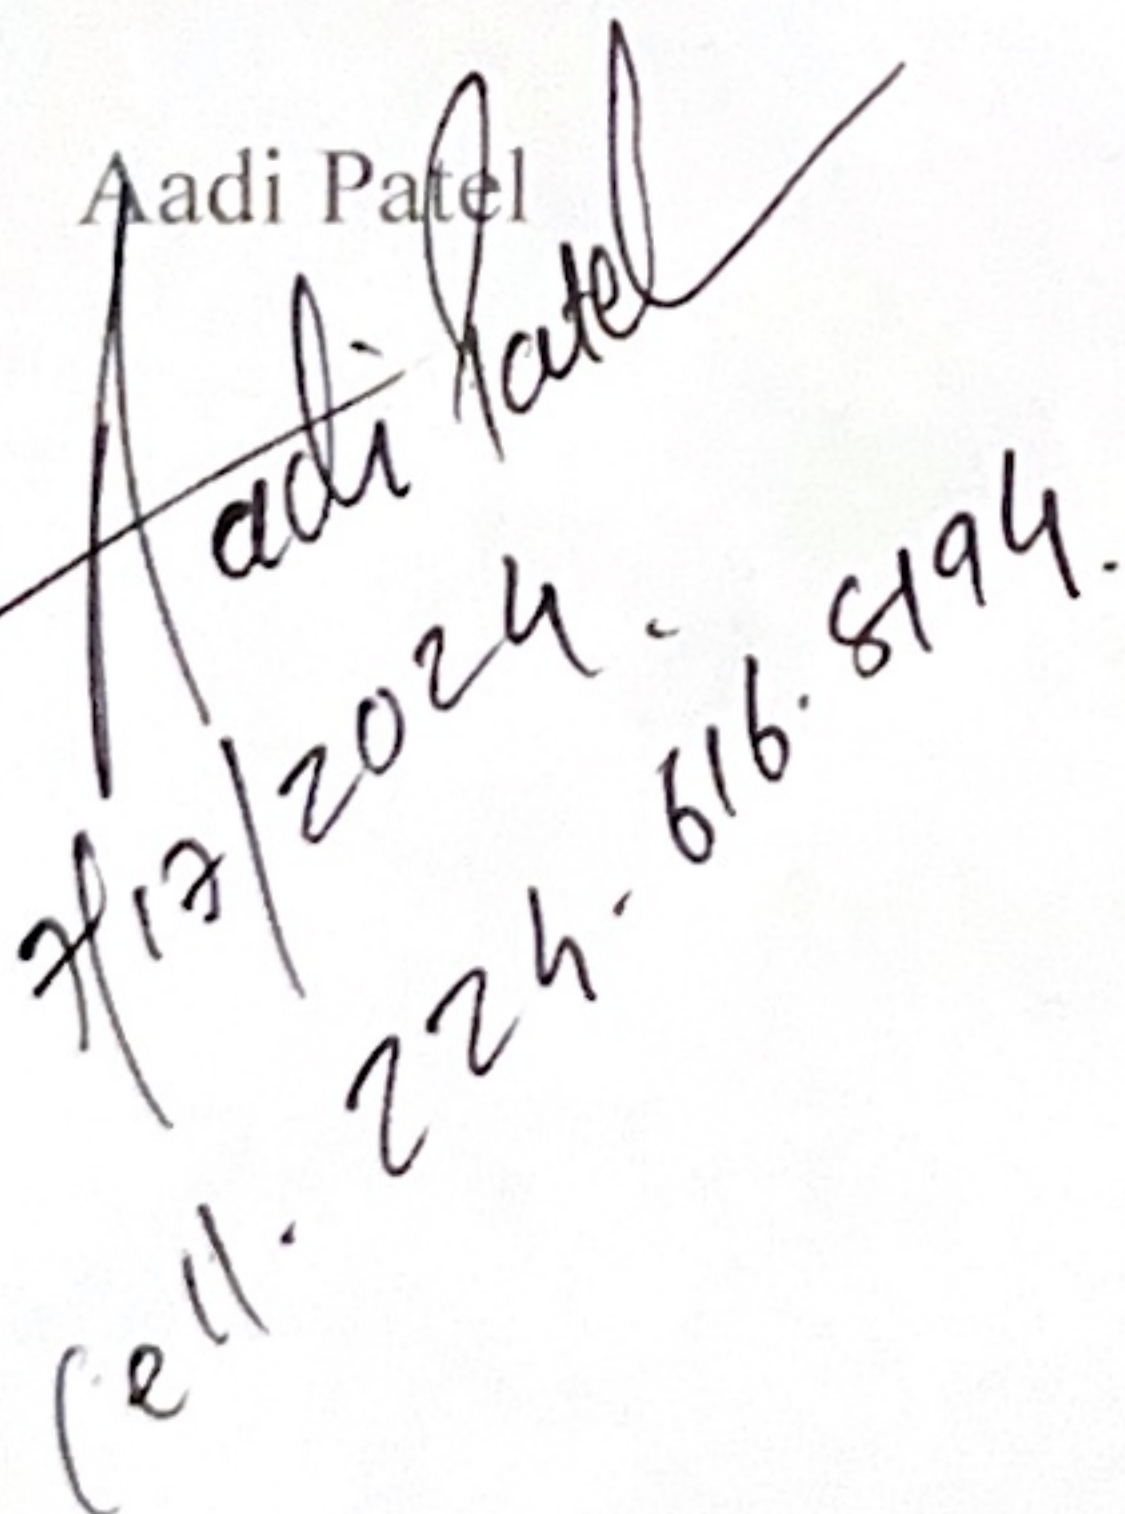 Aadi Patel
Aadi Patel
7/17/2024.
Cell. 224. 616. 8194.